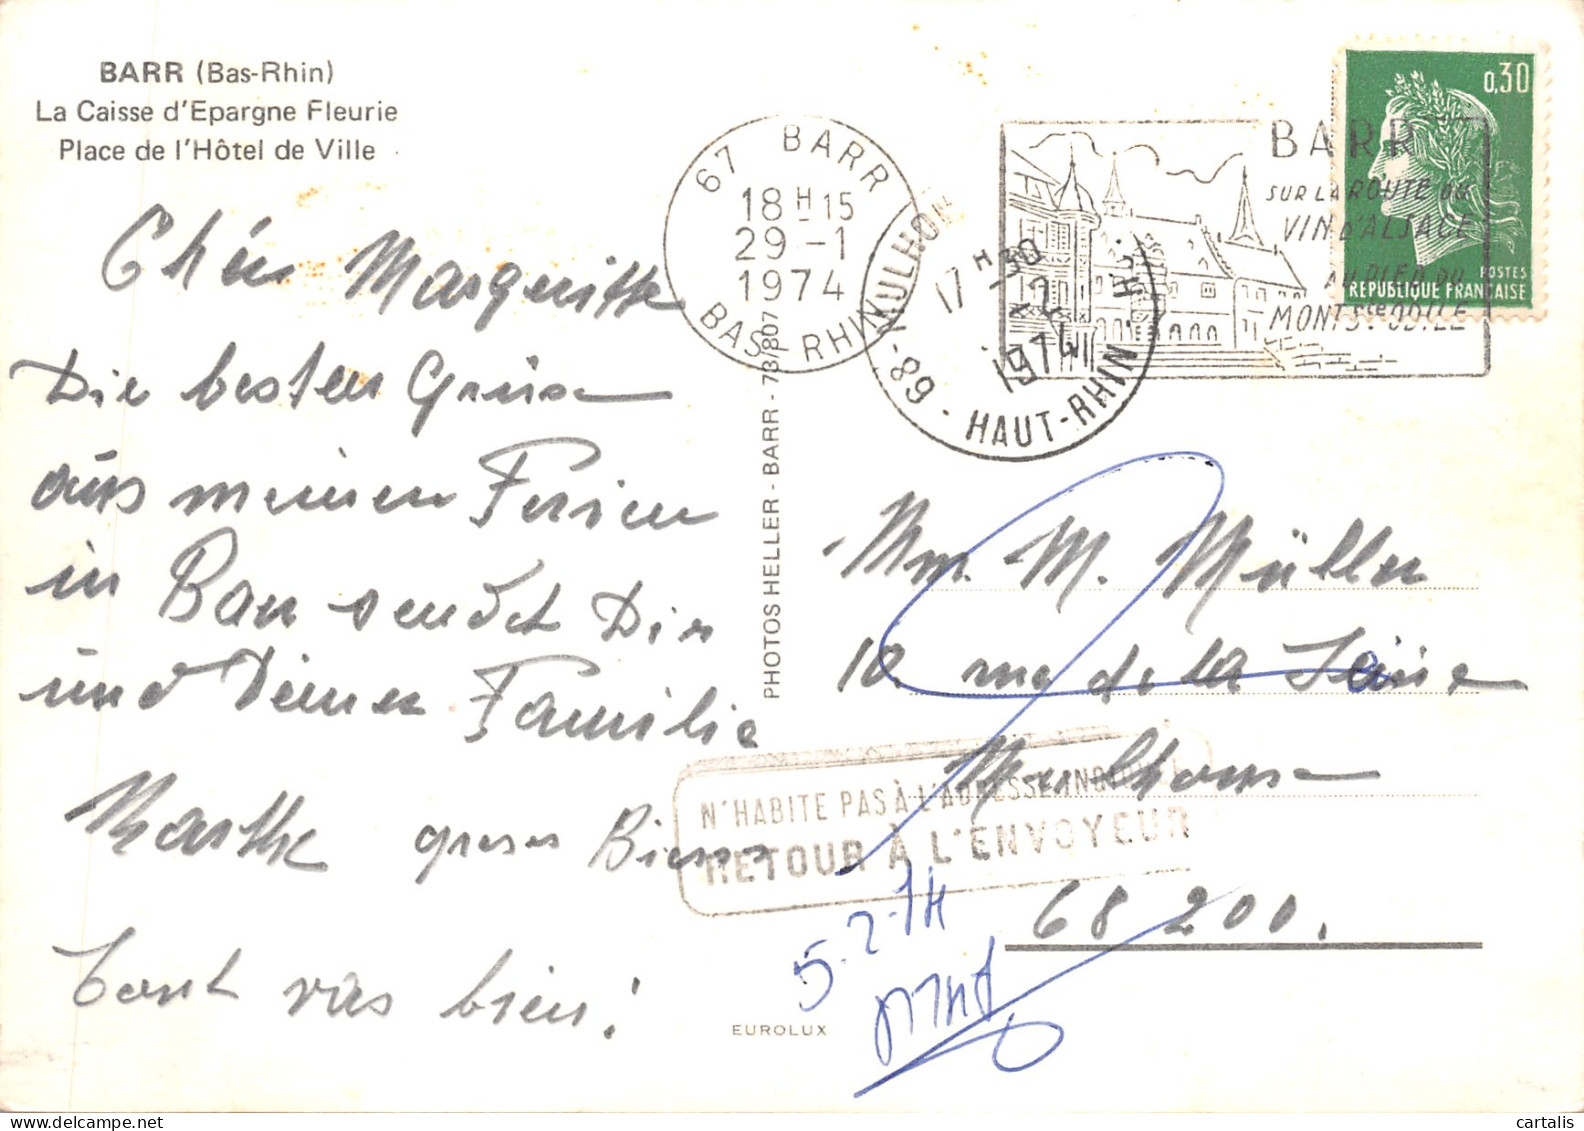 BARR (Bas-Rhin)
La Caisse d'Epargne Fleurie
Place de l'Hôtel de Ville
67 BARR
18 H 15
29 -1
1974
BAS-RHIN
MULHOUSE
17 H 30
1974
-89- HAUT-RHIN
BARR
SUR LA ROUTE DU
VIN D'ALSACE
AU PIED DU
MONT Ste ODILE
0,30
POSTES
REPUBLIQUE FRANÇAISE
Chère Marguritte
Die besten Grüse
aus meinen Ferien
in Barr sendet Dir
und Deiner Familie
Marthe
Tout vas bien!
PHOTOS HELLER - BARR - 73/807
EUROLUX
Mm. M. Müller
10 rue de la
Mulhouse
68 200.
N'HABITE PAS À L'ADRESSE INDIQUÉE
RETOUR À L'ENVOYEUR
5-2-74